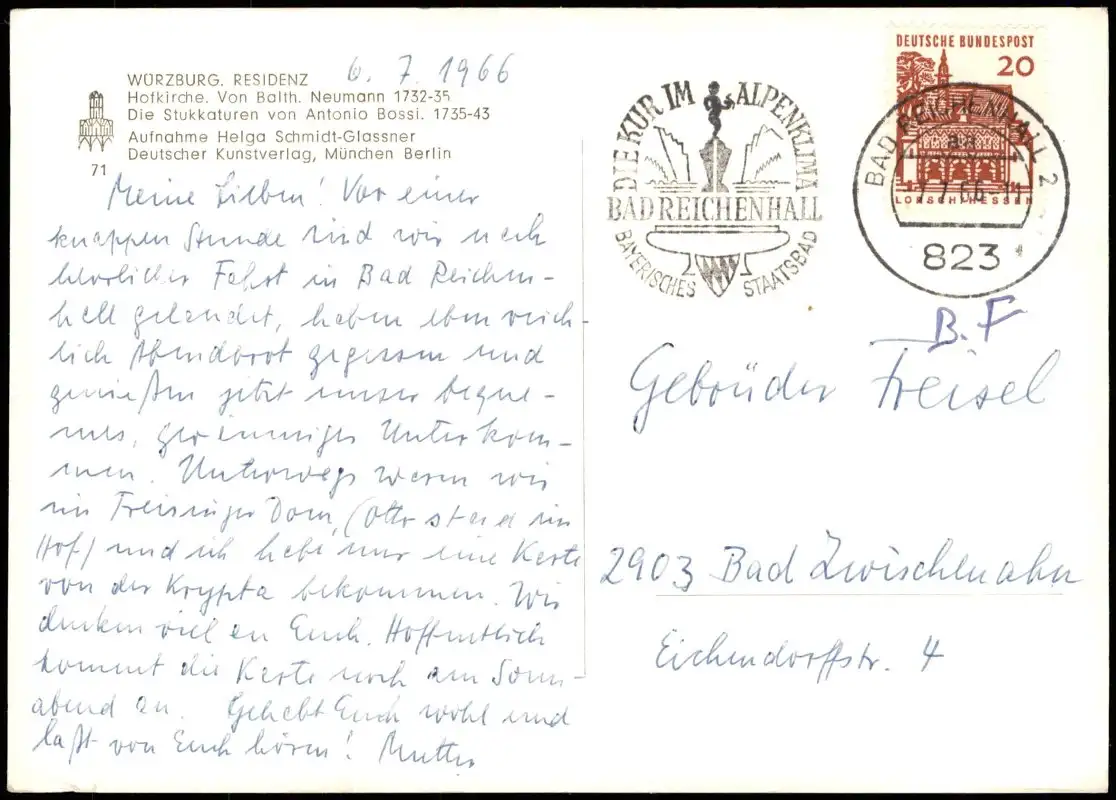 WÜRZBURG. RESIDENZ
Hofkirche. Von Balth. Neumann 1732-35
Die Stukkaturen von Antonio Bossi. 1735-43
Aufnahme Helga Schmidt-Glassner
Deutscher Kunstverlag, München Berlin
71
6. 7. 1966
Meine Lieben! Vor einer
knappen Stunde sind wir nach
herrlicher Fahrt in Bad Reichen-
hall gelandet, haben eben reich-
lich Abendbrot gegessen und
genießen jetzt unser beque-
mes, geräumiges Unterkom-
men. Unterwegs waren wir
im Freisinger Dom, (Otto stand im
Hof) und ich habe nur eine Karte
von der Krypta bekommen. Wir
denken viel an Euch. Hoffentlich
kommt die Karte noch am Sonn-
abend an. Gehabt Euch wohl und
laßt von Euch hören! Mutter
DIE KUR IM ALPENKLIMA
BAD REICHENHALL
BAYERISCHES STAATSBAD
DEUTSCHE BUNDESPOST
20
LORSCH/HESSEN
BAD REICHENHALL 2
7.7.66-11
823
B.F
Gebrüder Freisel
2903 Bad Zwischenahn
Eichendorffstr. 4